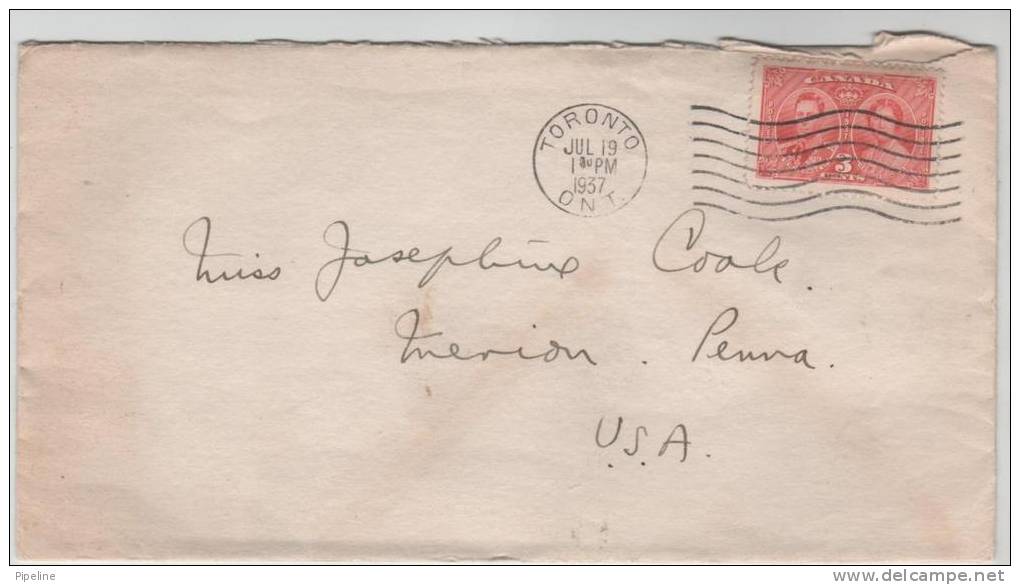 CANADA
3
CENTS
TORONTO
JUL 19
1 30 PM
1937
ONT.
Miss Josephine Cook.
Merion. Penna.
U.S.A.
Pipeline
www.delcampe.net